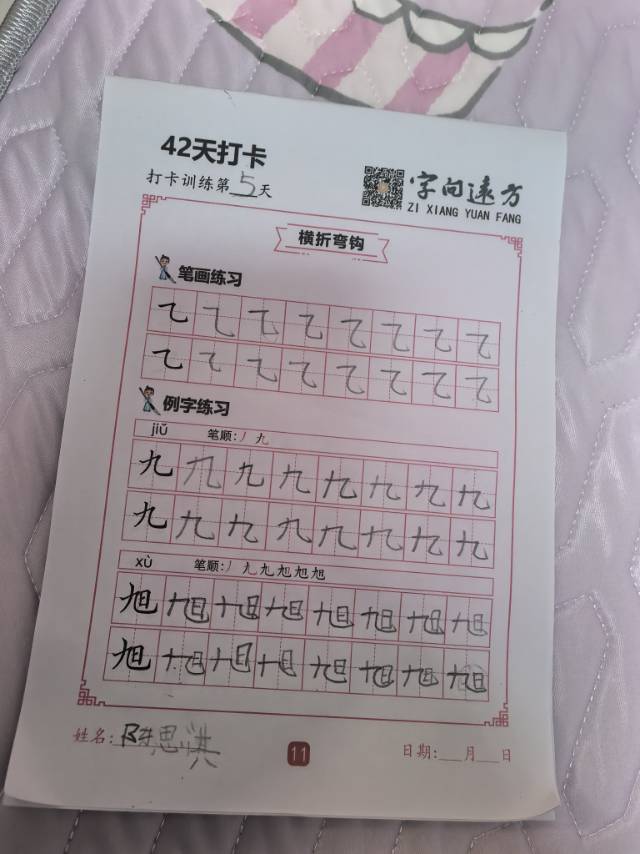 42天打卡
打卡训练第5天
字向速方
ZI XIANG YUAN FANG
横折弯钩
笔画练习
乙 乙 乙 乙 乙 乙 乙 乙
乙 乙 乙 乙 乙 乙 乙 乙
例字练习
jiǔ 笔顺:丿 九
九 九 九 九 九 九 九 九
九 九 九 九 九 九 九 九
xù 笔顺:丿 九 九 旭 旭 旭
旭 旭 旭 旭 旭 旭 旭 旭
旭 旭 旭 旭 旭 旭 旭 旭
姓名:陈思淇
11
日期:___月___日